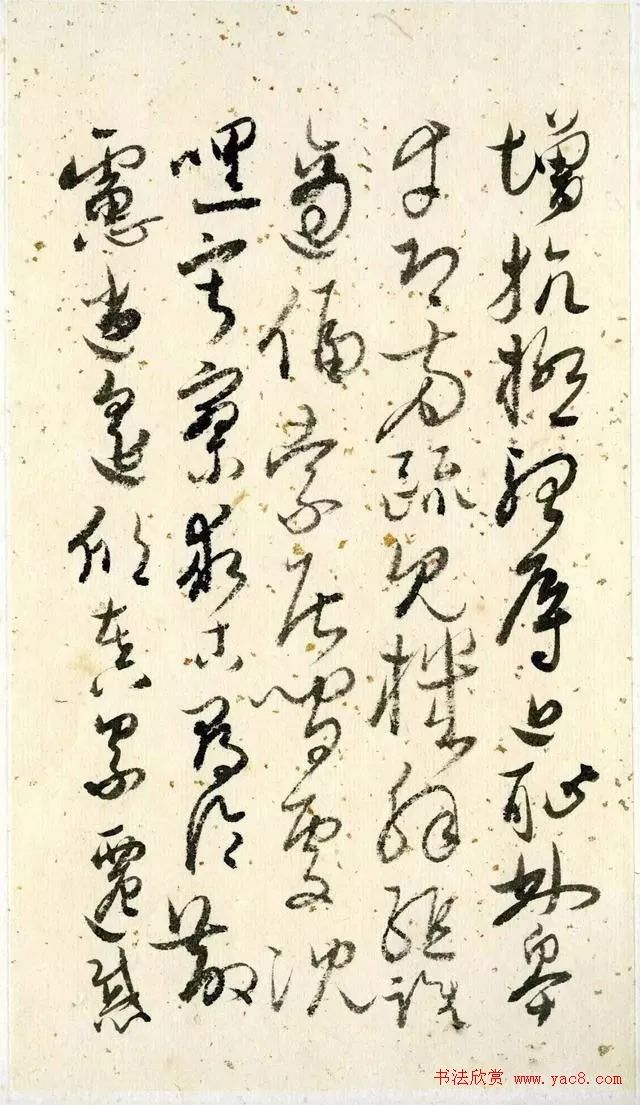 增抗極殆辱近恥林皋
幸即兩疏見機解組誰
逼偪索居閒處沈
嘿寂寥求古尋論散
慮逍遙欣奏累遣慼
书法欣赏 www.yac8.com